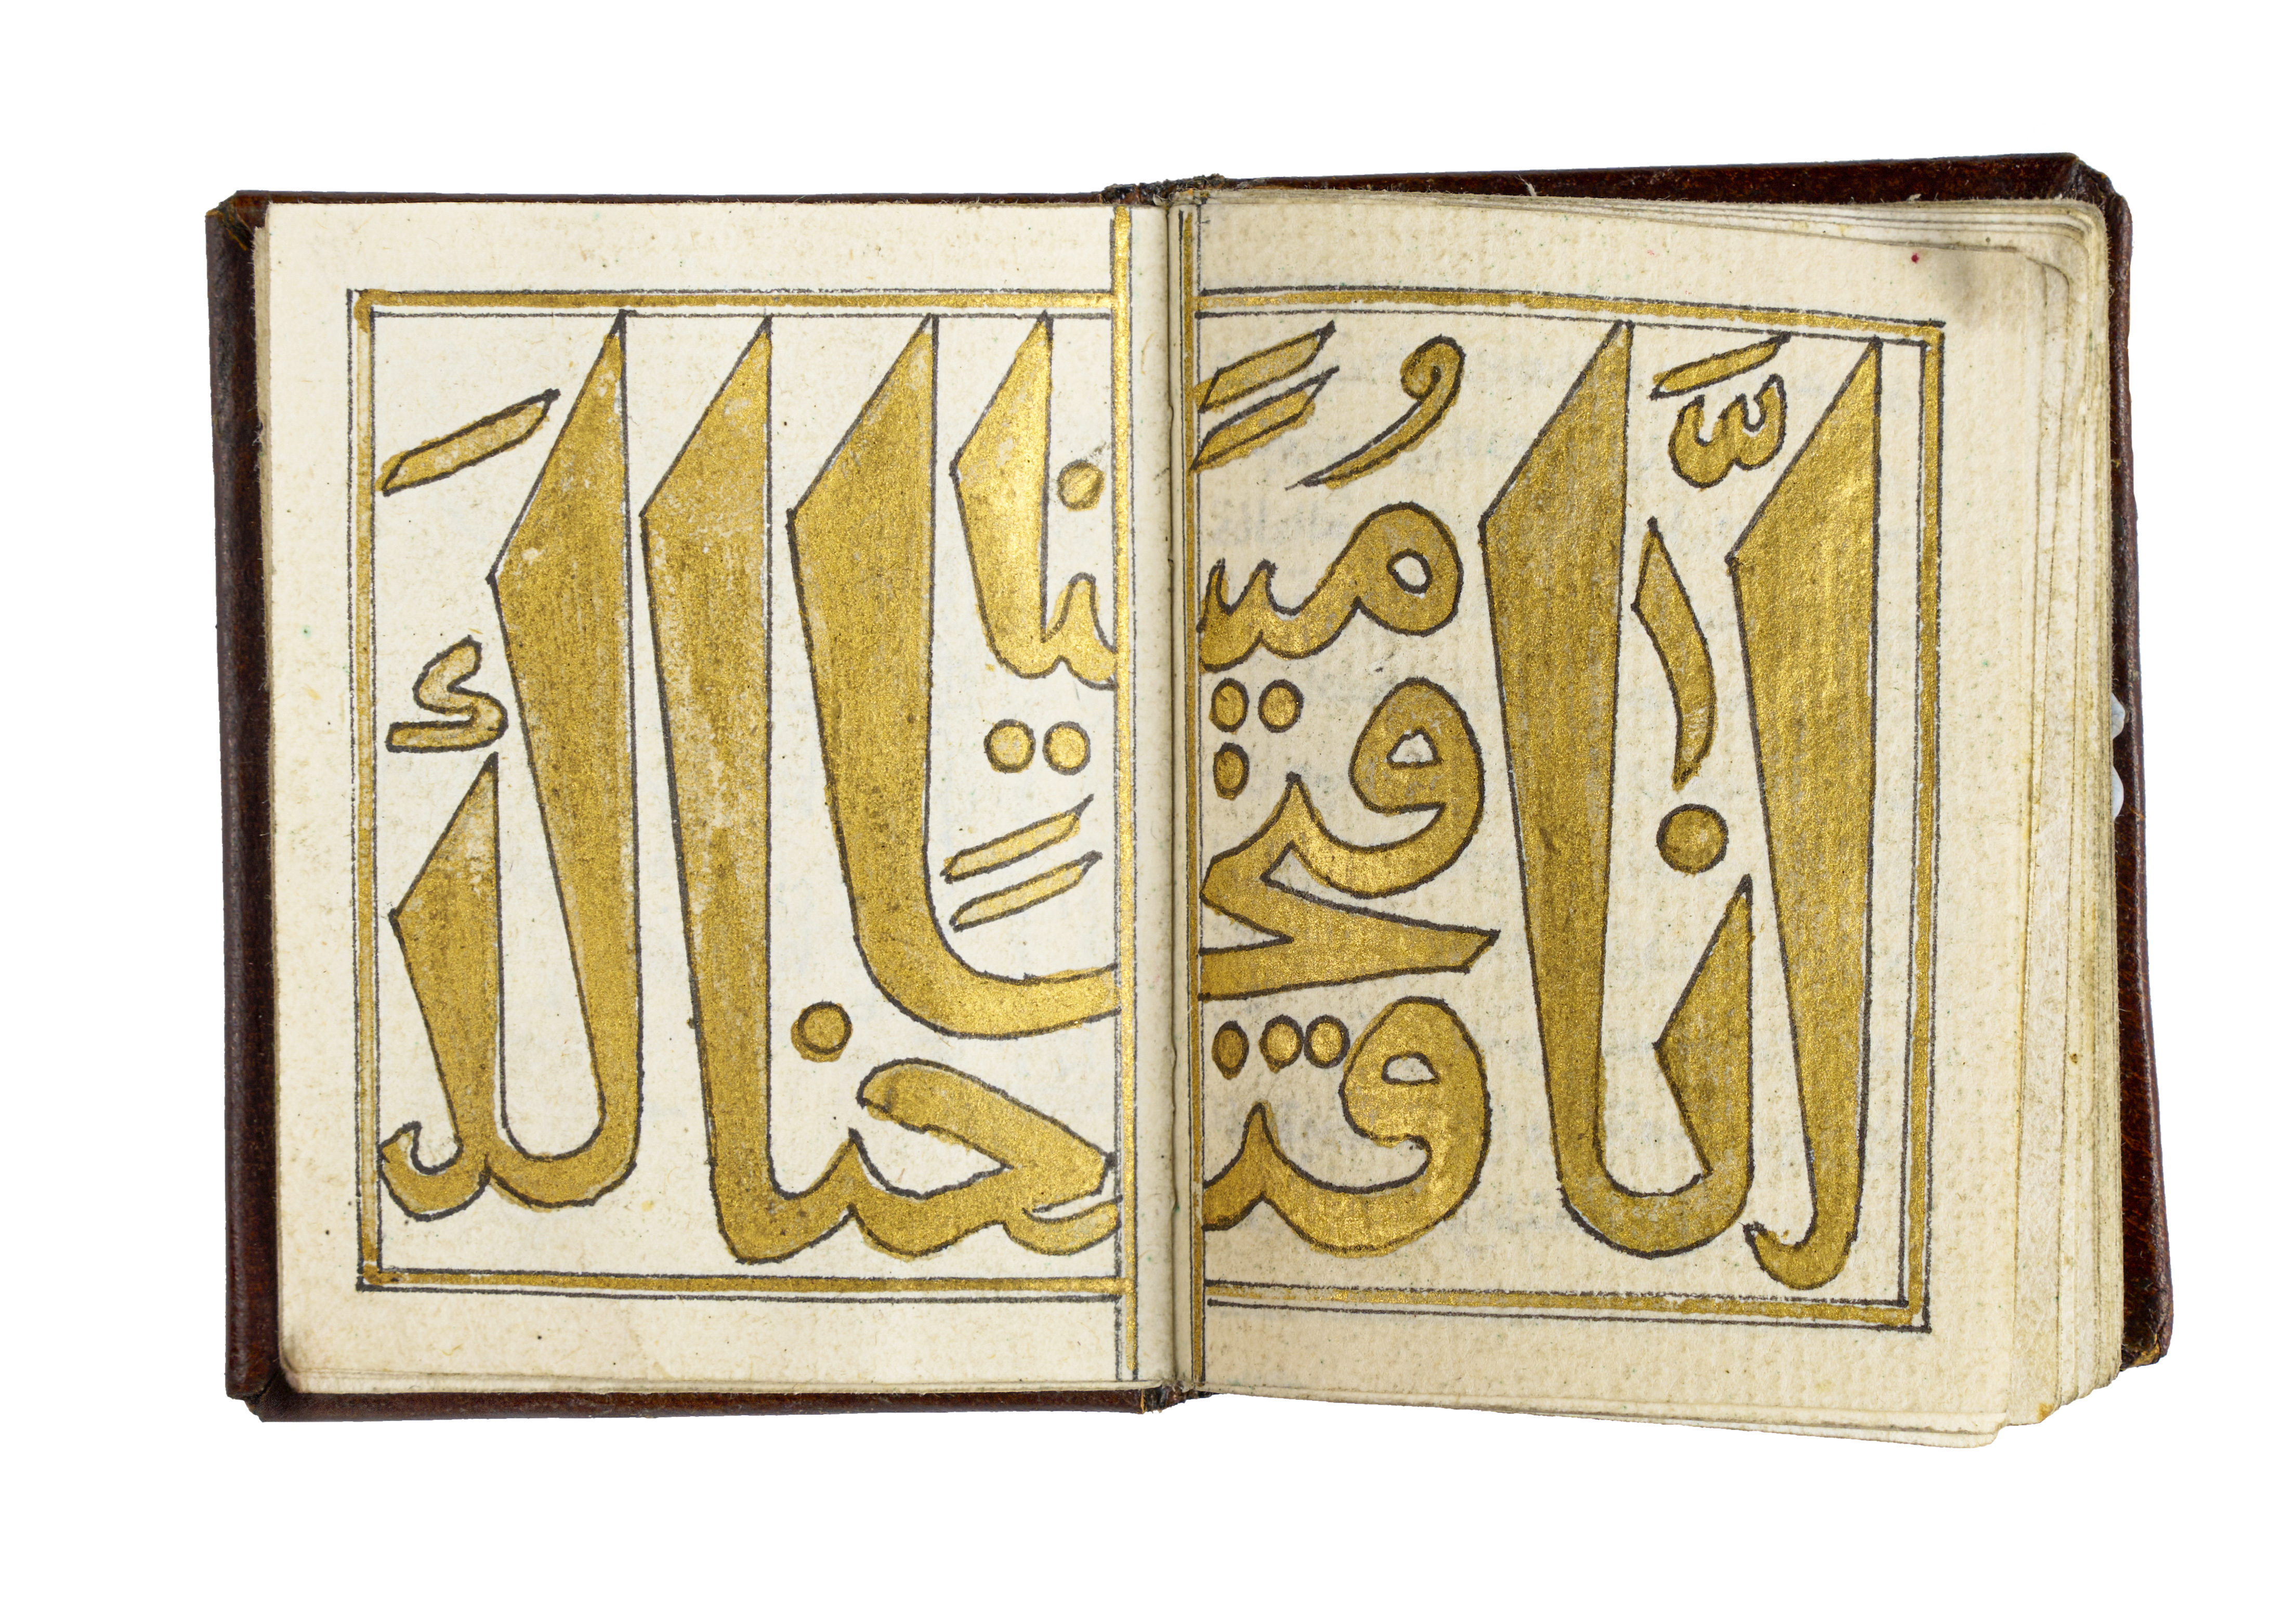 انَّا فتحنا لكَ فتحاً مُبيناً